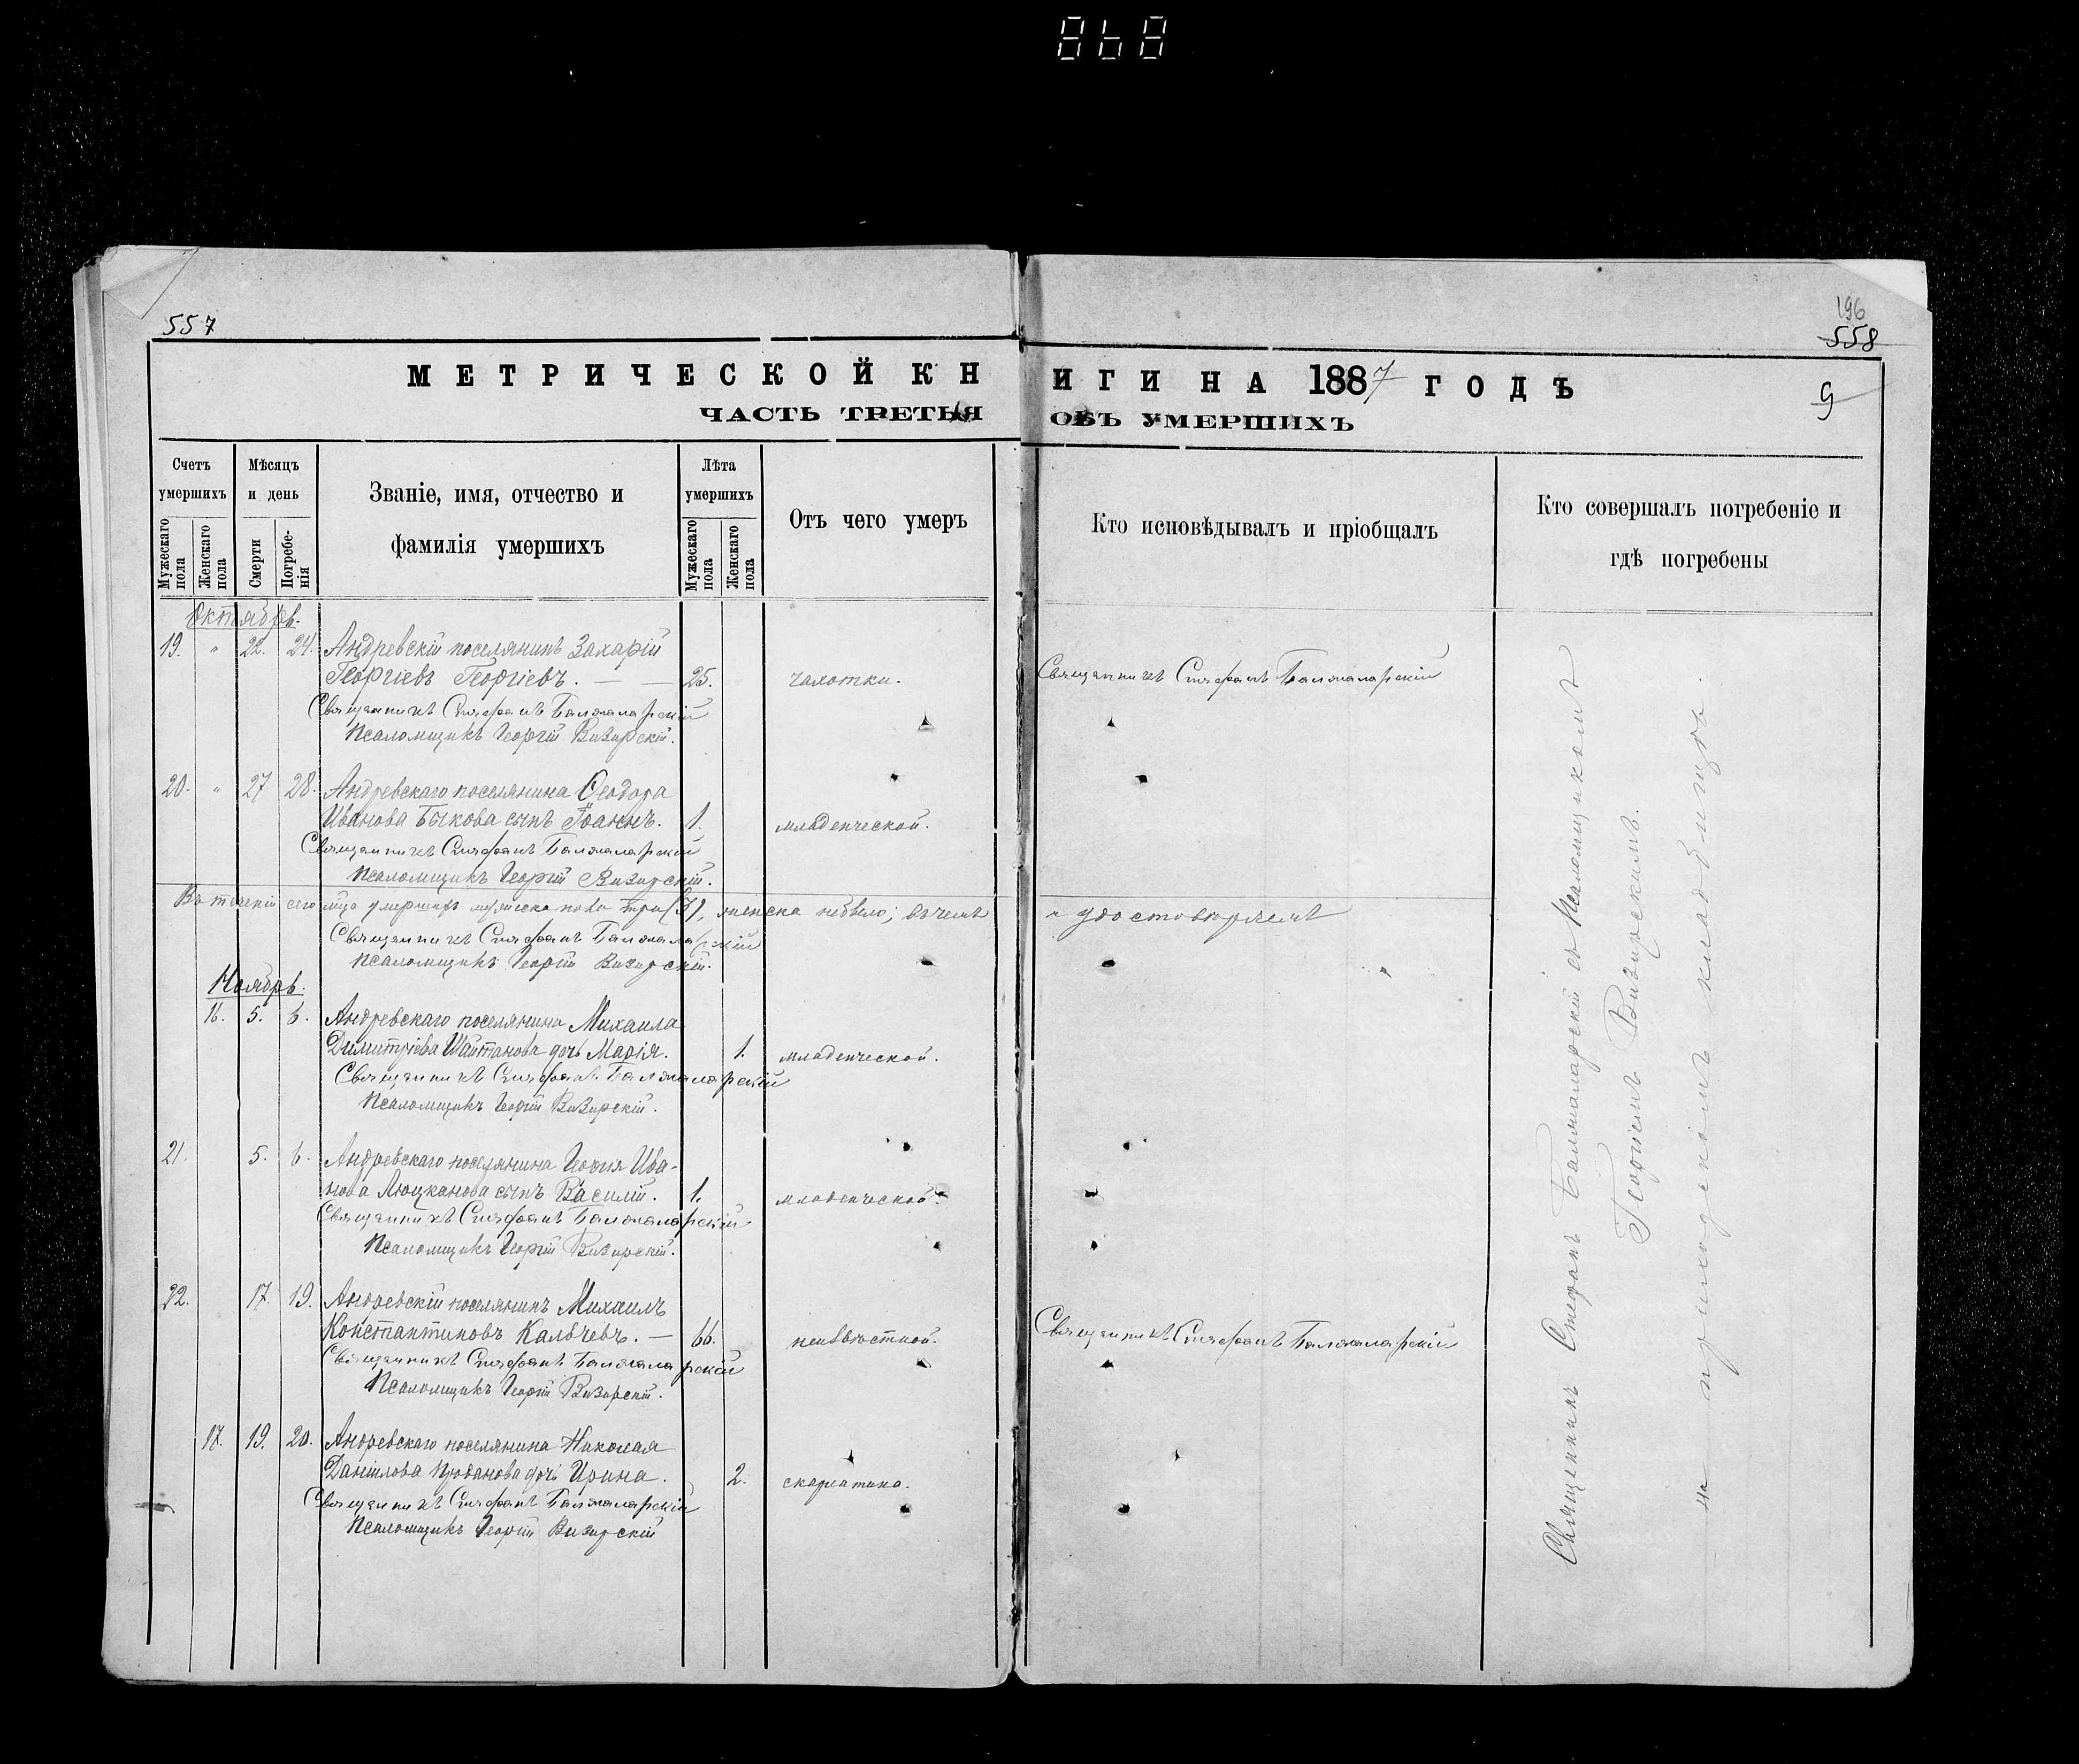 868
557
196
558
9
МЕТРИЧЕСКОЙ КНИГИ НА 1887 ГОДЪ
ЧАСТЬ ТРЕТЬЯ ОБЪ УМЕРШИХЪ
Счетъ умершихъ
Мѣсяцъ и день
Званіе, имя, отчество и фамилія умершихъ
Лѣта умершихъ
Отъ чего умеръ
Кто исповѣдывалъ и пріобщалъ
Кто совершалъ погребеніе и гдѣ погребены
Мужескаго пола
Женскаго пола
Смерти
Погребенія
Мужескаго пола
Женскаго пола
Октябрь.
19. " 22. 24. Андревскій поселянинъ Захарій
Георгіевъ Георгіевъ. — — 25. чахотки. Священникъ Стефанъ Балжаларскій
Священникъ Стефанъ Балжаларскій
Псаломщикъ Георгій Визирскій.
20. " 27 28. Андревскаго поселянина Ѳеодора
Иванова Быкова сынъ Іоаннъ. 1. младенческой.
Священникъ Стефанъ Балжаларскій
Псаломщикъ Георгій Визирскій.
Въ теченіи сего м-ца умершихъ мужеска пола три (3), женска небыло; въ чемъ и удостовѣряемъ
Священникъ Стефанъ Балжаларскій
Псаломщикъ Георгій Визирскій.
Ноябрь.
16. 5. 6. Андревскаго поселянина Михаила
Димитріева Шайтанова дочь Марія. 1. младенческой.
Священникъ Стефанъ Балжаларскій
Псаломщикъ Георгій Визирскій.
21. 5. 6. Андревскаго поселянина Георгія Ива-
нова Люцканова сынъ Василій. 1. младенческой.
Священникъ Стефанъ Балжаларскій
Псаломщикъ Георгій Визирскій.
22. 17. 19. Андревскій поселянинъ Михаилъ
Константиновъ Калѣчевъ. — 66. неизвѣстной. Священникъ Стефанъ Балжаларскій
Священникъ Стефанъ Балжаларскій
Псаломщикъ Георгій Визирскій.
17. 19. 20. Андревскаго поселянина Николая
Даніилова Проданова дочь Ирина. 2. скарлатина.
Священникъ Стефанъ Балжаларскій
Псаломщикъ Георгій Визирскій
Священникъ Стефанъ Балжаларскій съ Псаломщикомъ
Георгіемъ Визирскимъ.
на приходскомъ кладбищѣ.